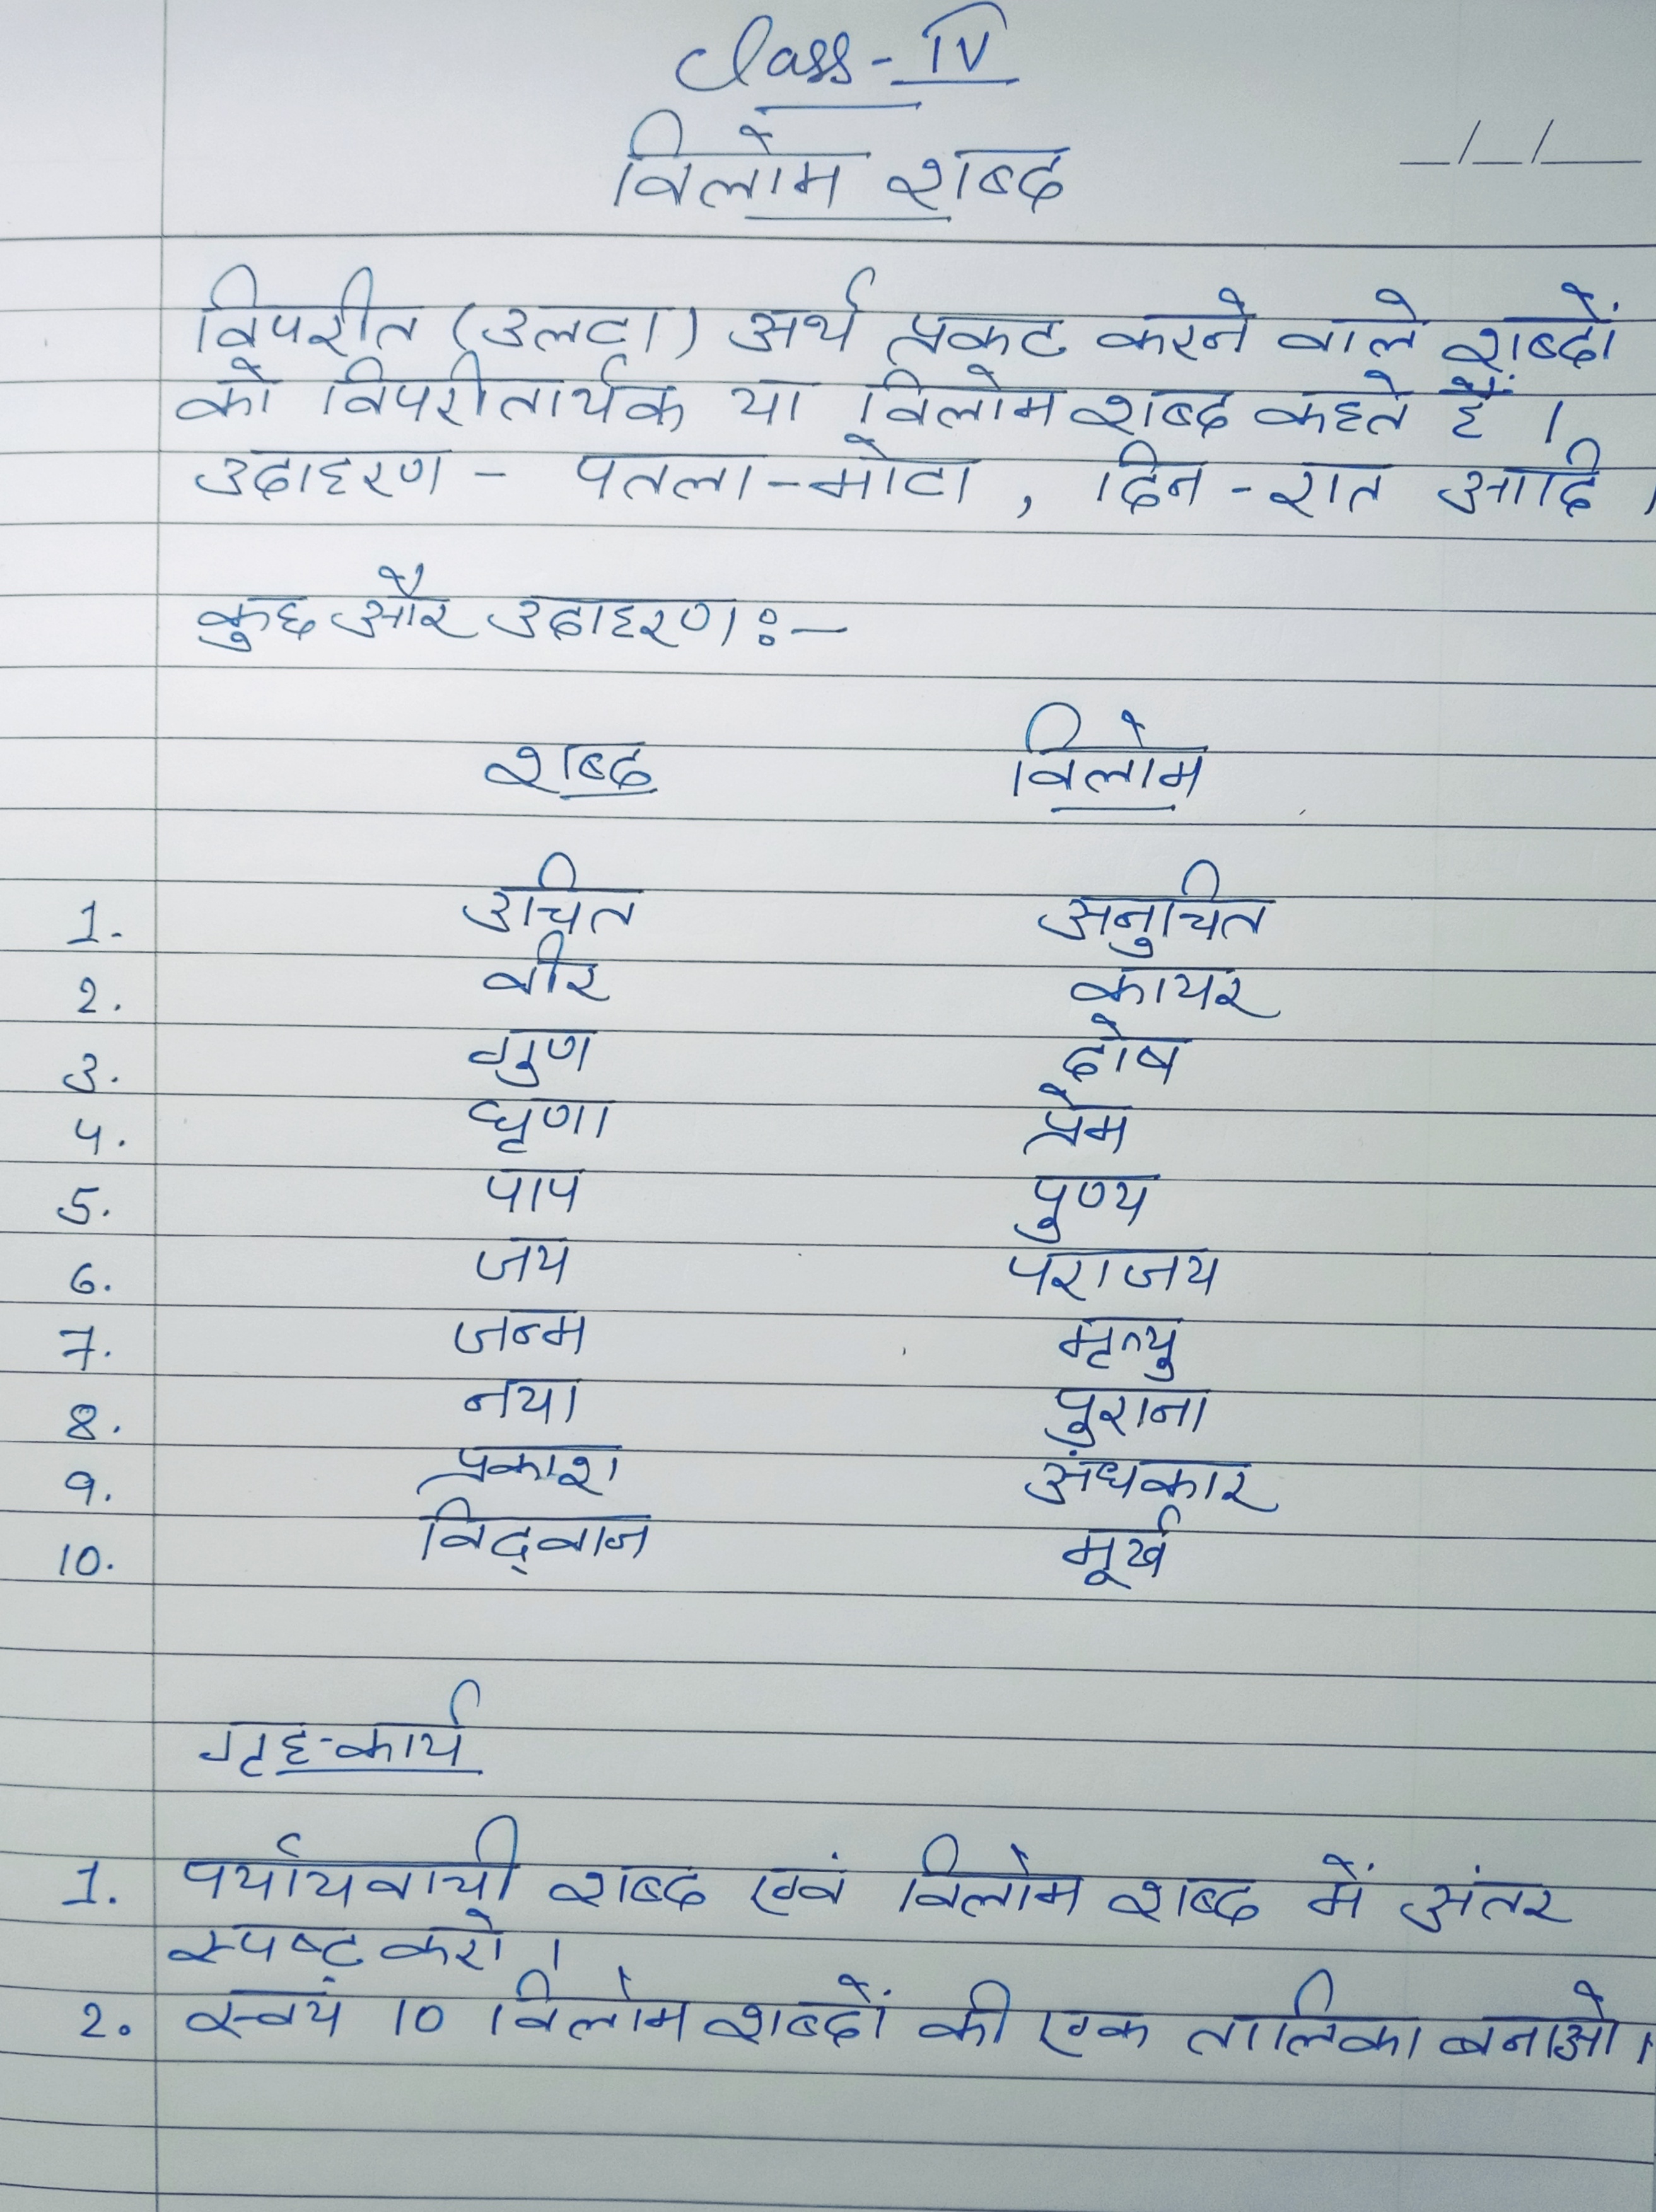 Class - IV
विलोम शब्द
_/_/__
विपरीत (उलटा) अर्थ प्रकट करने वाले शब्दों
को विपरीतार्थक या विलोम शब्द कहते हैं ।
उदाहरण - पतला-मोटा, दिन-रात आदि ।
कुछ और उदाहरण :-
शब्द विलोम
1. उचित अनुचित
2. वीर कायर
3. गुण दोष
4. घृणा प्रेम
5. पाप पुण्य
6. जय पराजय
7. जन्म मृत्यु
8. नया पुराना
9. प्रकाश अंधकार
10. विद्वान मूर्ख
गृह-कार्य
1. पर्यायवाची शब्द एवं विलोम शब्द में अंतर
स्पष्ट करो ।
2. स्वयं 10 विलोम शब्दों की एक तालिका बनाओ ।